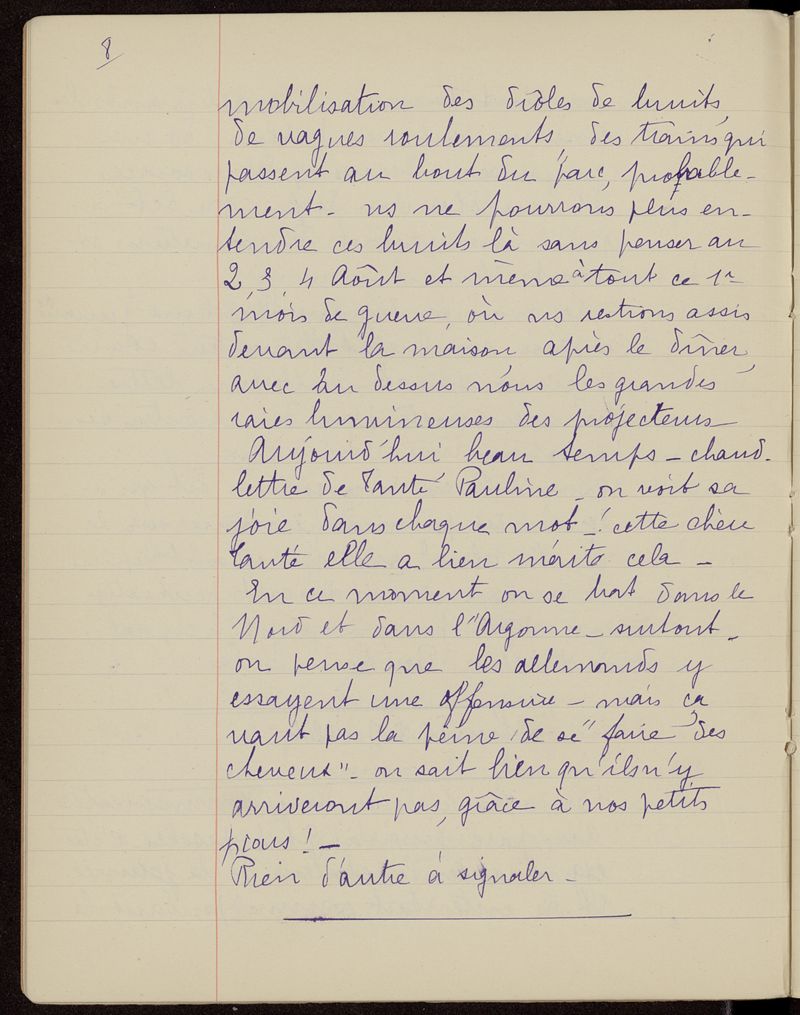 8
mobilisation des drôles de bruits,
de vagues roulements, des trains qui
passent au bout du parc, probable-
ment - ns ne pourrons plus en-
tendre ces bruits là sans penser au
2, 3, 4 Août et même à tout ce 1er
mois de guerre, où ns restions assis
devant la maison après le dîner,
avec au dessus nous les grandes
raies lumineuses des projecteurs
Aujourd'hui beau temps - chaud -
lettre de Tante Pauline - on voit sa
joie dans chaque mot - ! cette chère
Tante elle a bien mérité cela -
En ce moment on se bat dans le
Nord et dans l'Argonne - surtout -
on pense que les allemands y
essayent une offensive - mais ça
vaut pas la peine de se "faire des
cheveux" - on sait bien qu'ils n'y
arriveront pas, grâce à nos petits
pious ! -
Rien d'autre à signaler -